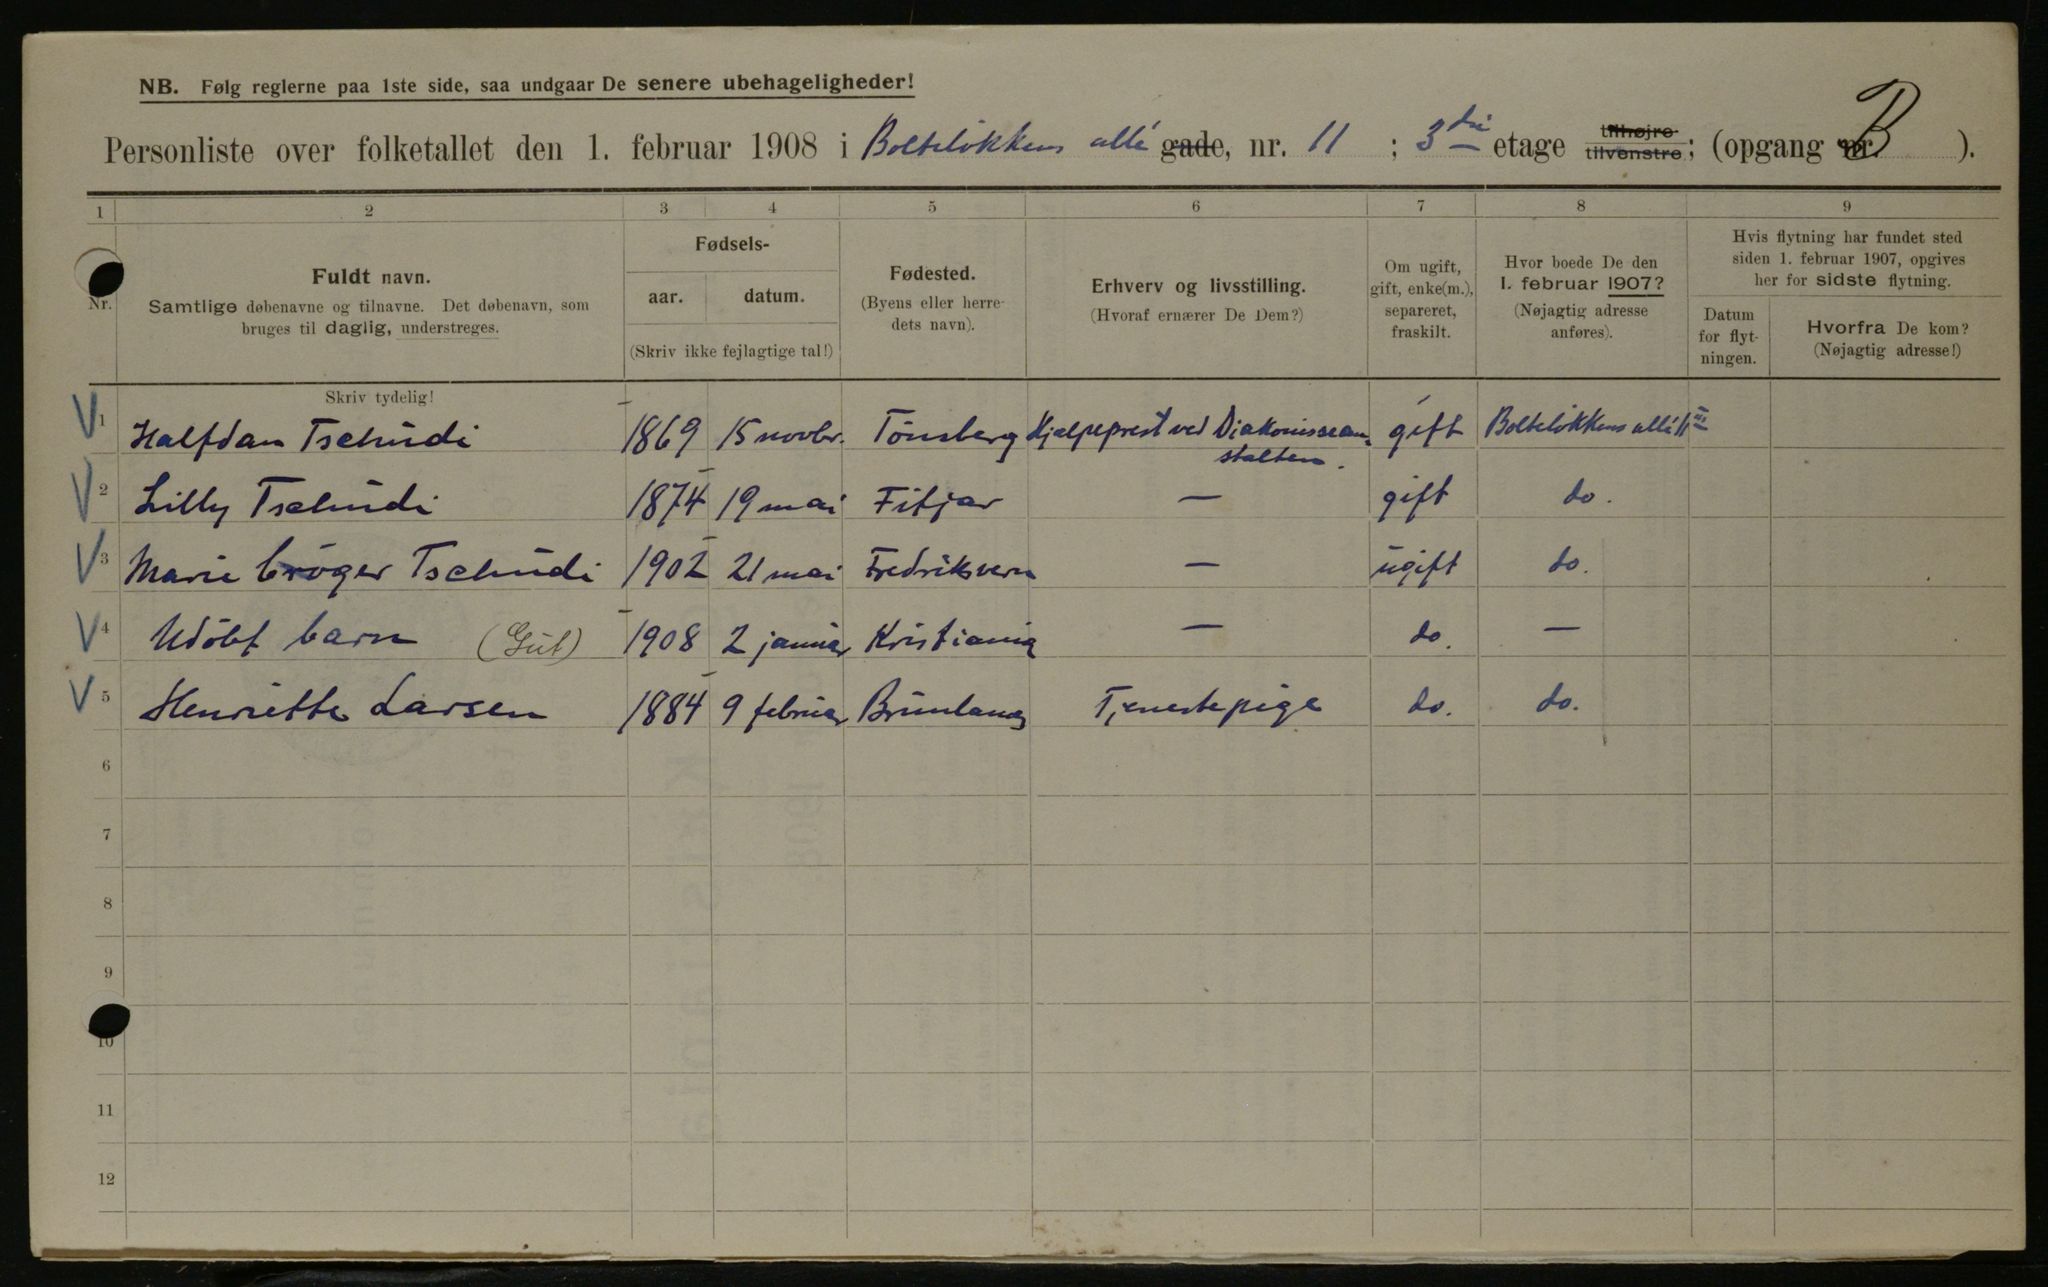 NB. Følg reglerne paa 1ste side, saa undgaar De senere ubehageligheder!
Personliste over folketallet den 1. februar 1908 i Bolteløkkens allé gade, nr. 11 ; 3die etage tilhøjre tilvenstre; (opgang nr. B ).
1 2 3 4 5 6 7 8 9
Nr.
Fuldt navn.
Samtlige døbenavne og tilnavne. Det døbenavn, som
bruges til daglig, understreges.
Skriv tydelig!
Fødsels-
aar. datum.
(Skriv ikke fejlagtige tal!)
Fødested.
(Byens eller herre-
dets navn).
Erhverv og livsstilling.
(Hvoraf ernærer De Dem?)
Om ugift,
gift, enke(m.),
separeret,
fraskilt.
Hvor boede De den
1. februar 1907?
(Nøjagtig adresse
anføres).
Hvis flytning har fundet sted
siden 1. februar 1907, opgives
her for sidste flytning.
Datum
for flyt-
ningen.
Hvorfra De kom?
(Nøjagtig adresse!)
1 Halfdan Tschudi 1869 15 novbr. Tönsberg Hjælpeprest ved Diakonissean-
stalten. gift Bolteløkkens allé 11
2 Lilly Tschudi 1874 19 mai Fitjar — gift do.
3 Marie Cröger Tschudi 1902 21 mai Fredriksvern — ugift do.
4 Udöbt barn (Gut) 1908 2 januar Kristiania — do. —
5 Henriette Larsen 1884 9 februar Brunlanes Tjenestepige do. do.
6
7
8
9
10
11
12